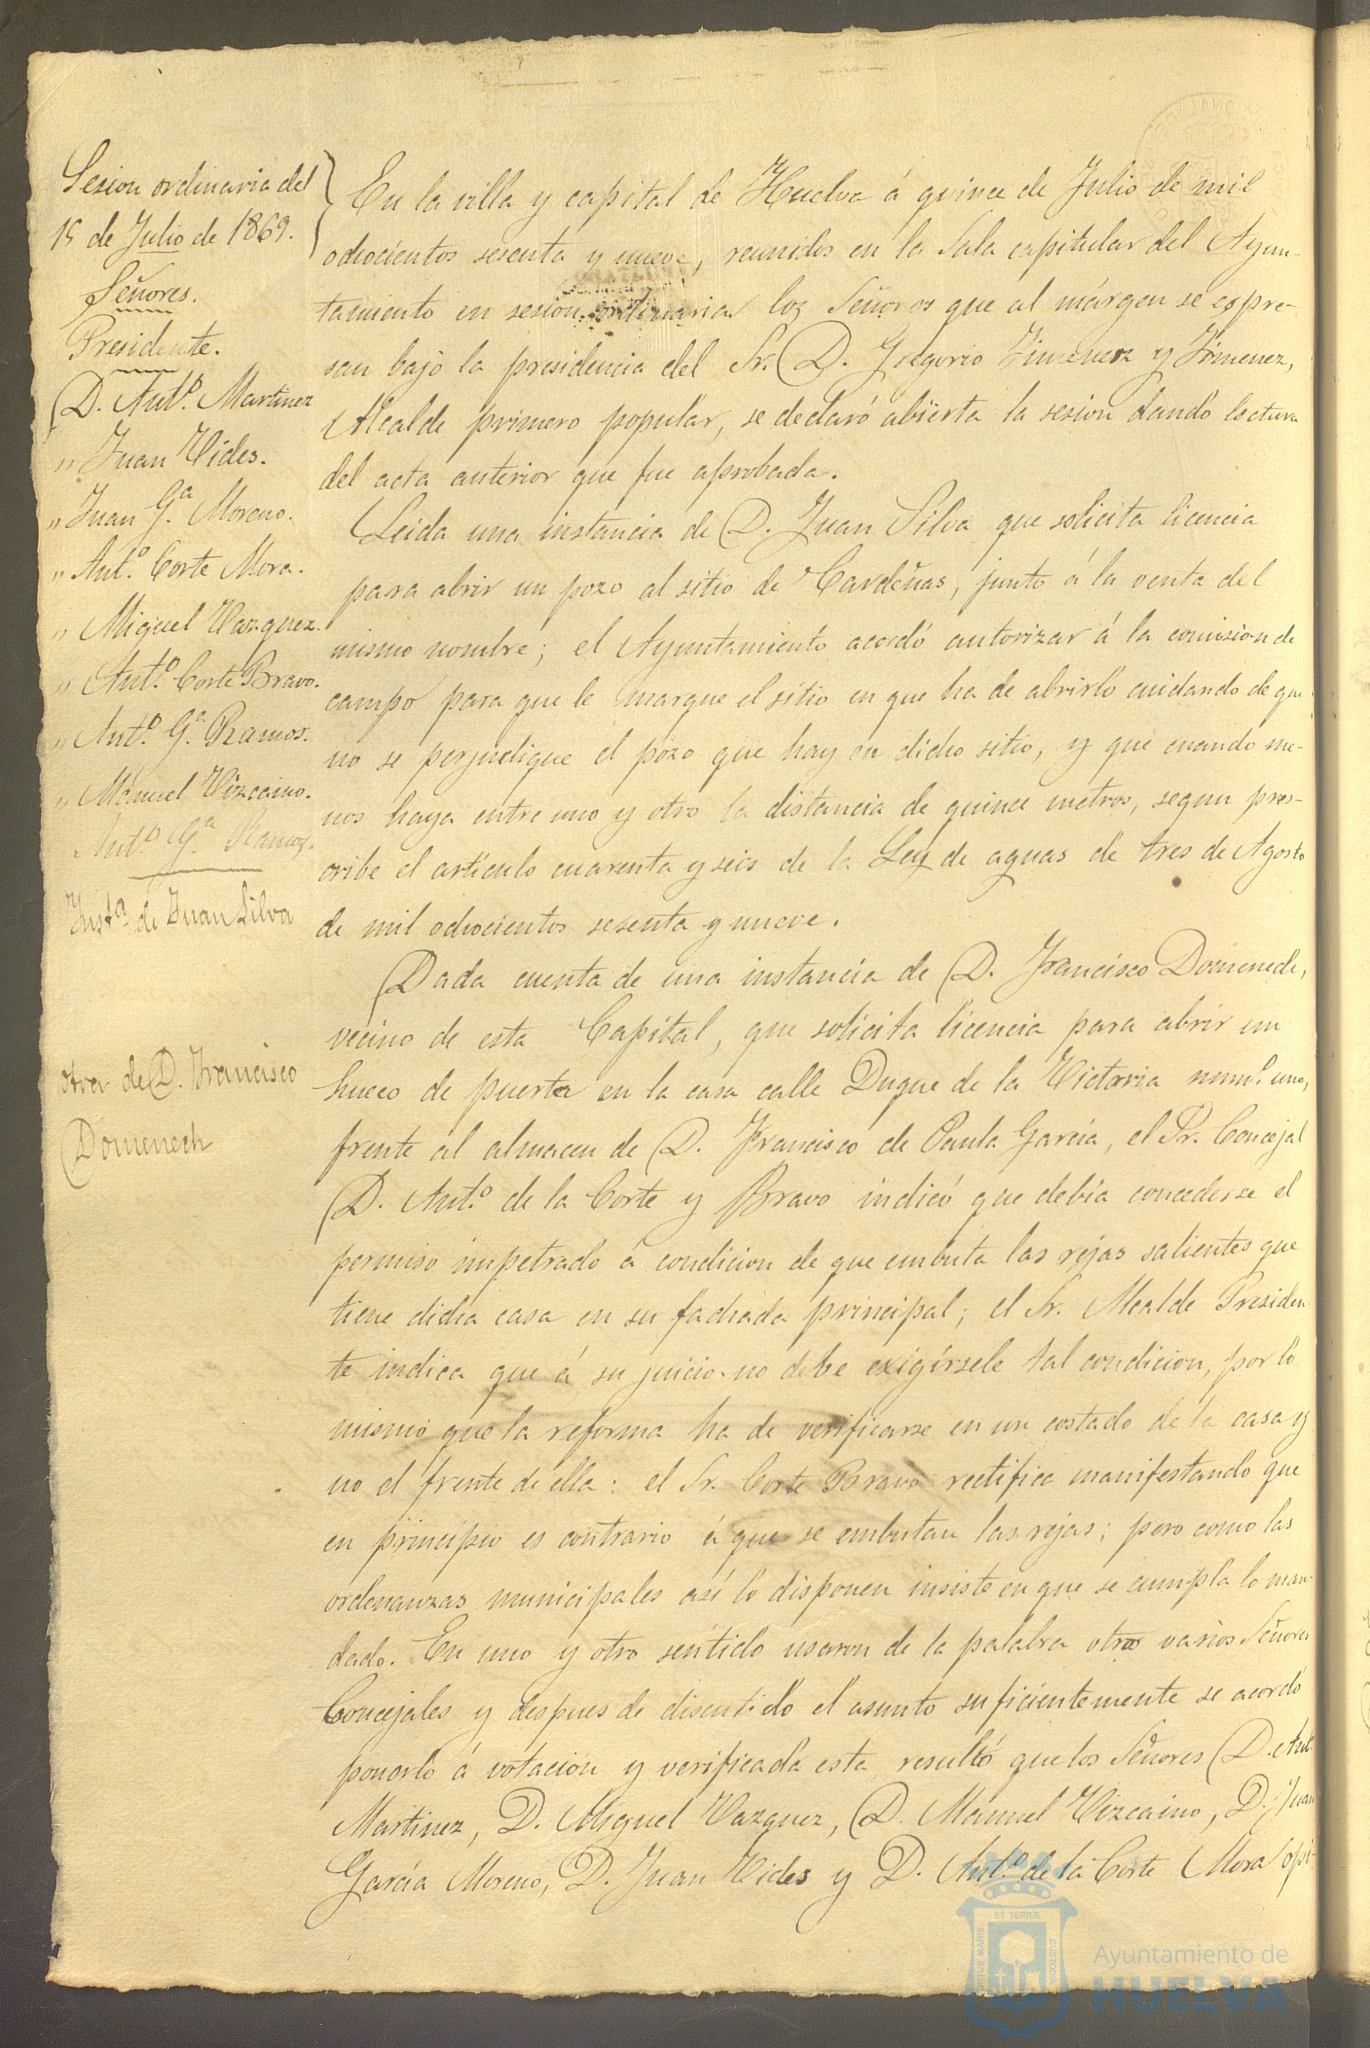 Sesion ordinaria del
15 de Julio de 1869.
Señores.
Presidente.
D. Antº. Martinez
" Juan Vides.
" Juan G.ª Moreno.
" Antº. Corte Mora.
" Miguel Vazquez.
" Antº. Corte Bravo.
" Antº. G.ª Ramos.
" Manuel Vizcaino.
Antº G.ª Ramos.
Inst.ª de Juan Silva
otra de D. Francisco
Domenech
En la villa y capital de Huelva á quince de Julio de mil
ochocientos sesenta y nueve, reunidos en la Sala capitular del Ayun-
tamiento en sesion ordinaria los Señores que al márgen se expre-
san bajo la presidencia del Sr. D. Gregorio Jimenez y Jimenez,
Alcalde primero popular, se declaró abierta la sesion dando lectura
del acta anterior que fue aprobada.
Leida una instancia de D. Juan Silva que solicita licencia
para abrir un pozo al sitio de Cardeñas, junto á la venta del
mismo nombre; el Ayuntamiento acordó autorizar á la comision de
campo para que le marque el sitio en que ha de abrirlo cuidando de que
no se perjudique el pozo que hay en dicho sitio, y que cuando me-
nos haya entre uno y otro la distancia de quince metros, segun pres-
cribe el artículo cuarenta y seis de la Ley de aguas de tres de Agosto
de mil ochocientos sesenta y nueve.
Dada cuenta de una instancia de D. Francisco Domenech,
vecino de esta Capital, que solicita licencia para abrir un
hueco de puerta en la casa calle Duque de la Victoria num.º uno,
frente al almacen de D. Francisco de Paula García, el Sr. Concejal
D. Antº. de la Corte y Bravo indicó que debía concederse el
permiso impetrado á condicion de que embuta las rejas salientes que
tiene dicha casa en su fachada principal; el Sr. Alcalde Presiden-
te indica que á su juicio no debe exigírsele tal condicion, por lo
mismo que la reforma ha de verificarse en un costado de la casa y
no el frente de ella: el Sr. Corte Bravo rectifica manifestando que
en principio es contrario á que se embutan las rejas; pero como las
ordenanzas municipales así lo disponen insiste en que se cumpla lo man-
dado. En uno y otro sentido usaron de la palabra otros varios Señores
Concejales y despues de discutido el asunto suficientemente se acordó
ponerlo á votacion y verificada esta resultó que los Señores D. Antº.
Martinez, D. Miguel Vazquez, D. Manuel Vizcaino, D. Juan
García Moreno, D. Juan Vides y D. Antº. de la Corte Mora opi-
Ayuntamiento de
HUELVA